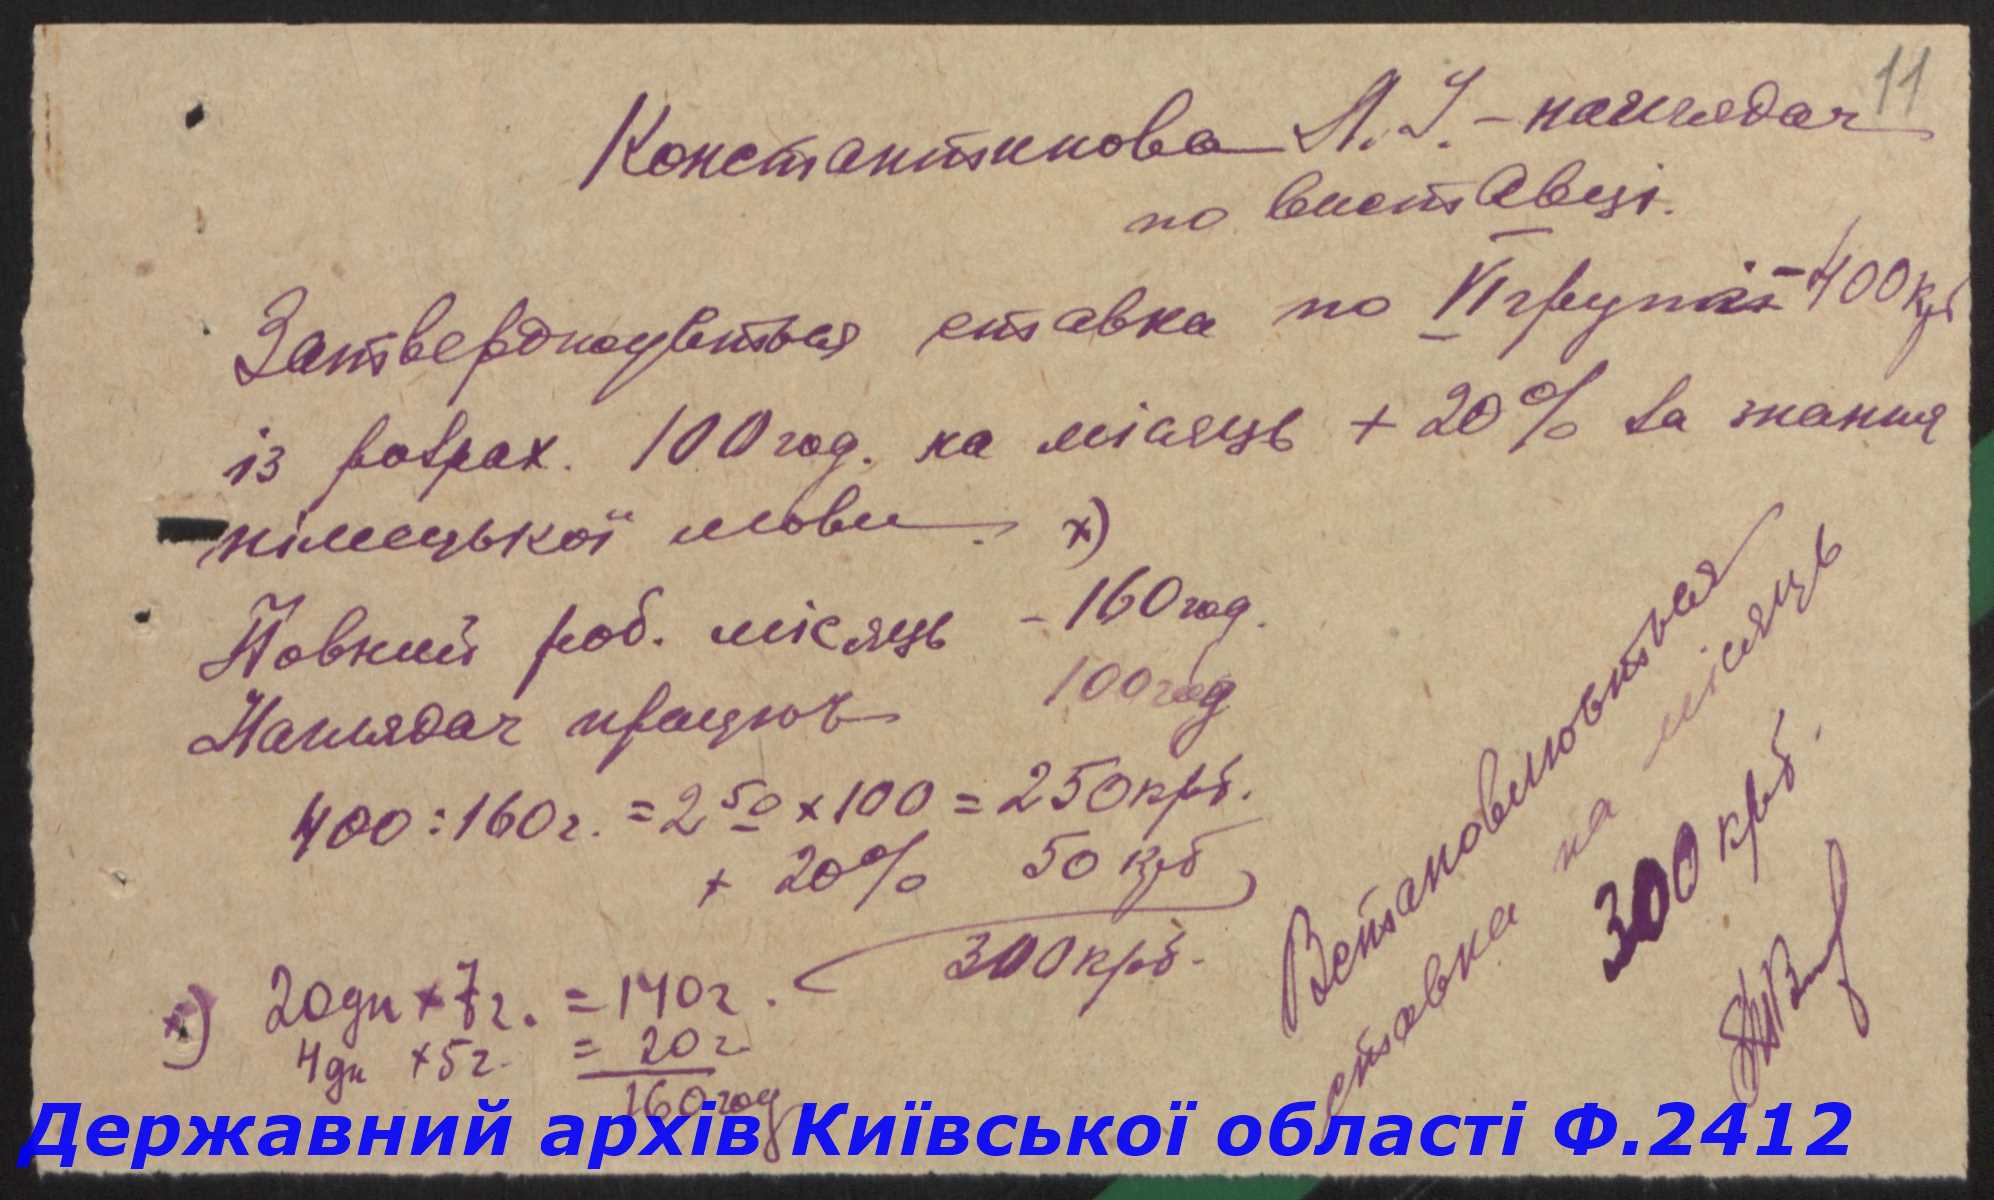 11
Константинова Л. І. – наглядач
по виставці.
Затверджується ставка по VI групі – 400 крб
із розрах. 100 год. на місяць + 20% за знання
німецької мови. х)
Повний роб. місяць – 160 год.
Наглядач працює 100 год
400 : 160 г. = 2 50 х 100 = 250 крб.
+ 20% 50 крб
300 крб.
х) 20 дн х 7 г. = 140 г.
4 дн х 5 г. = 20 г.
160 год
Встановлюється
ставка на місяць
300 крб.
Державний архів Київської області Ф.2412